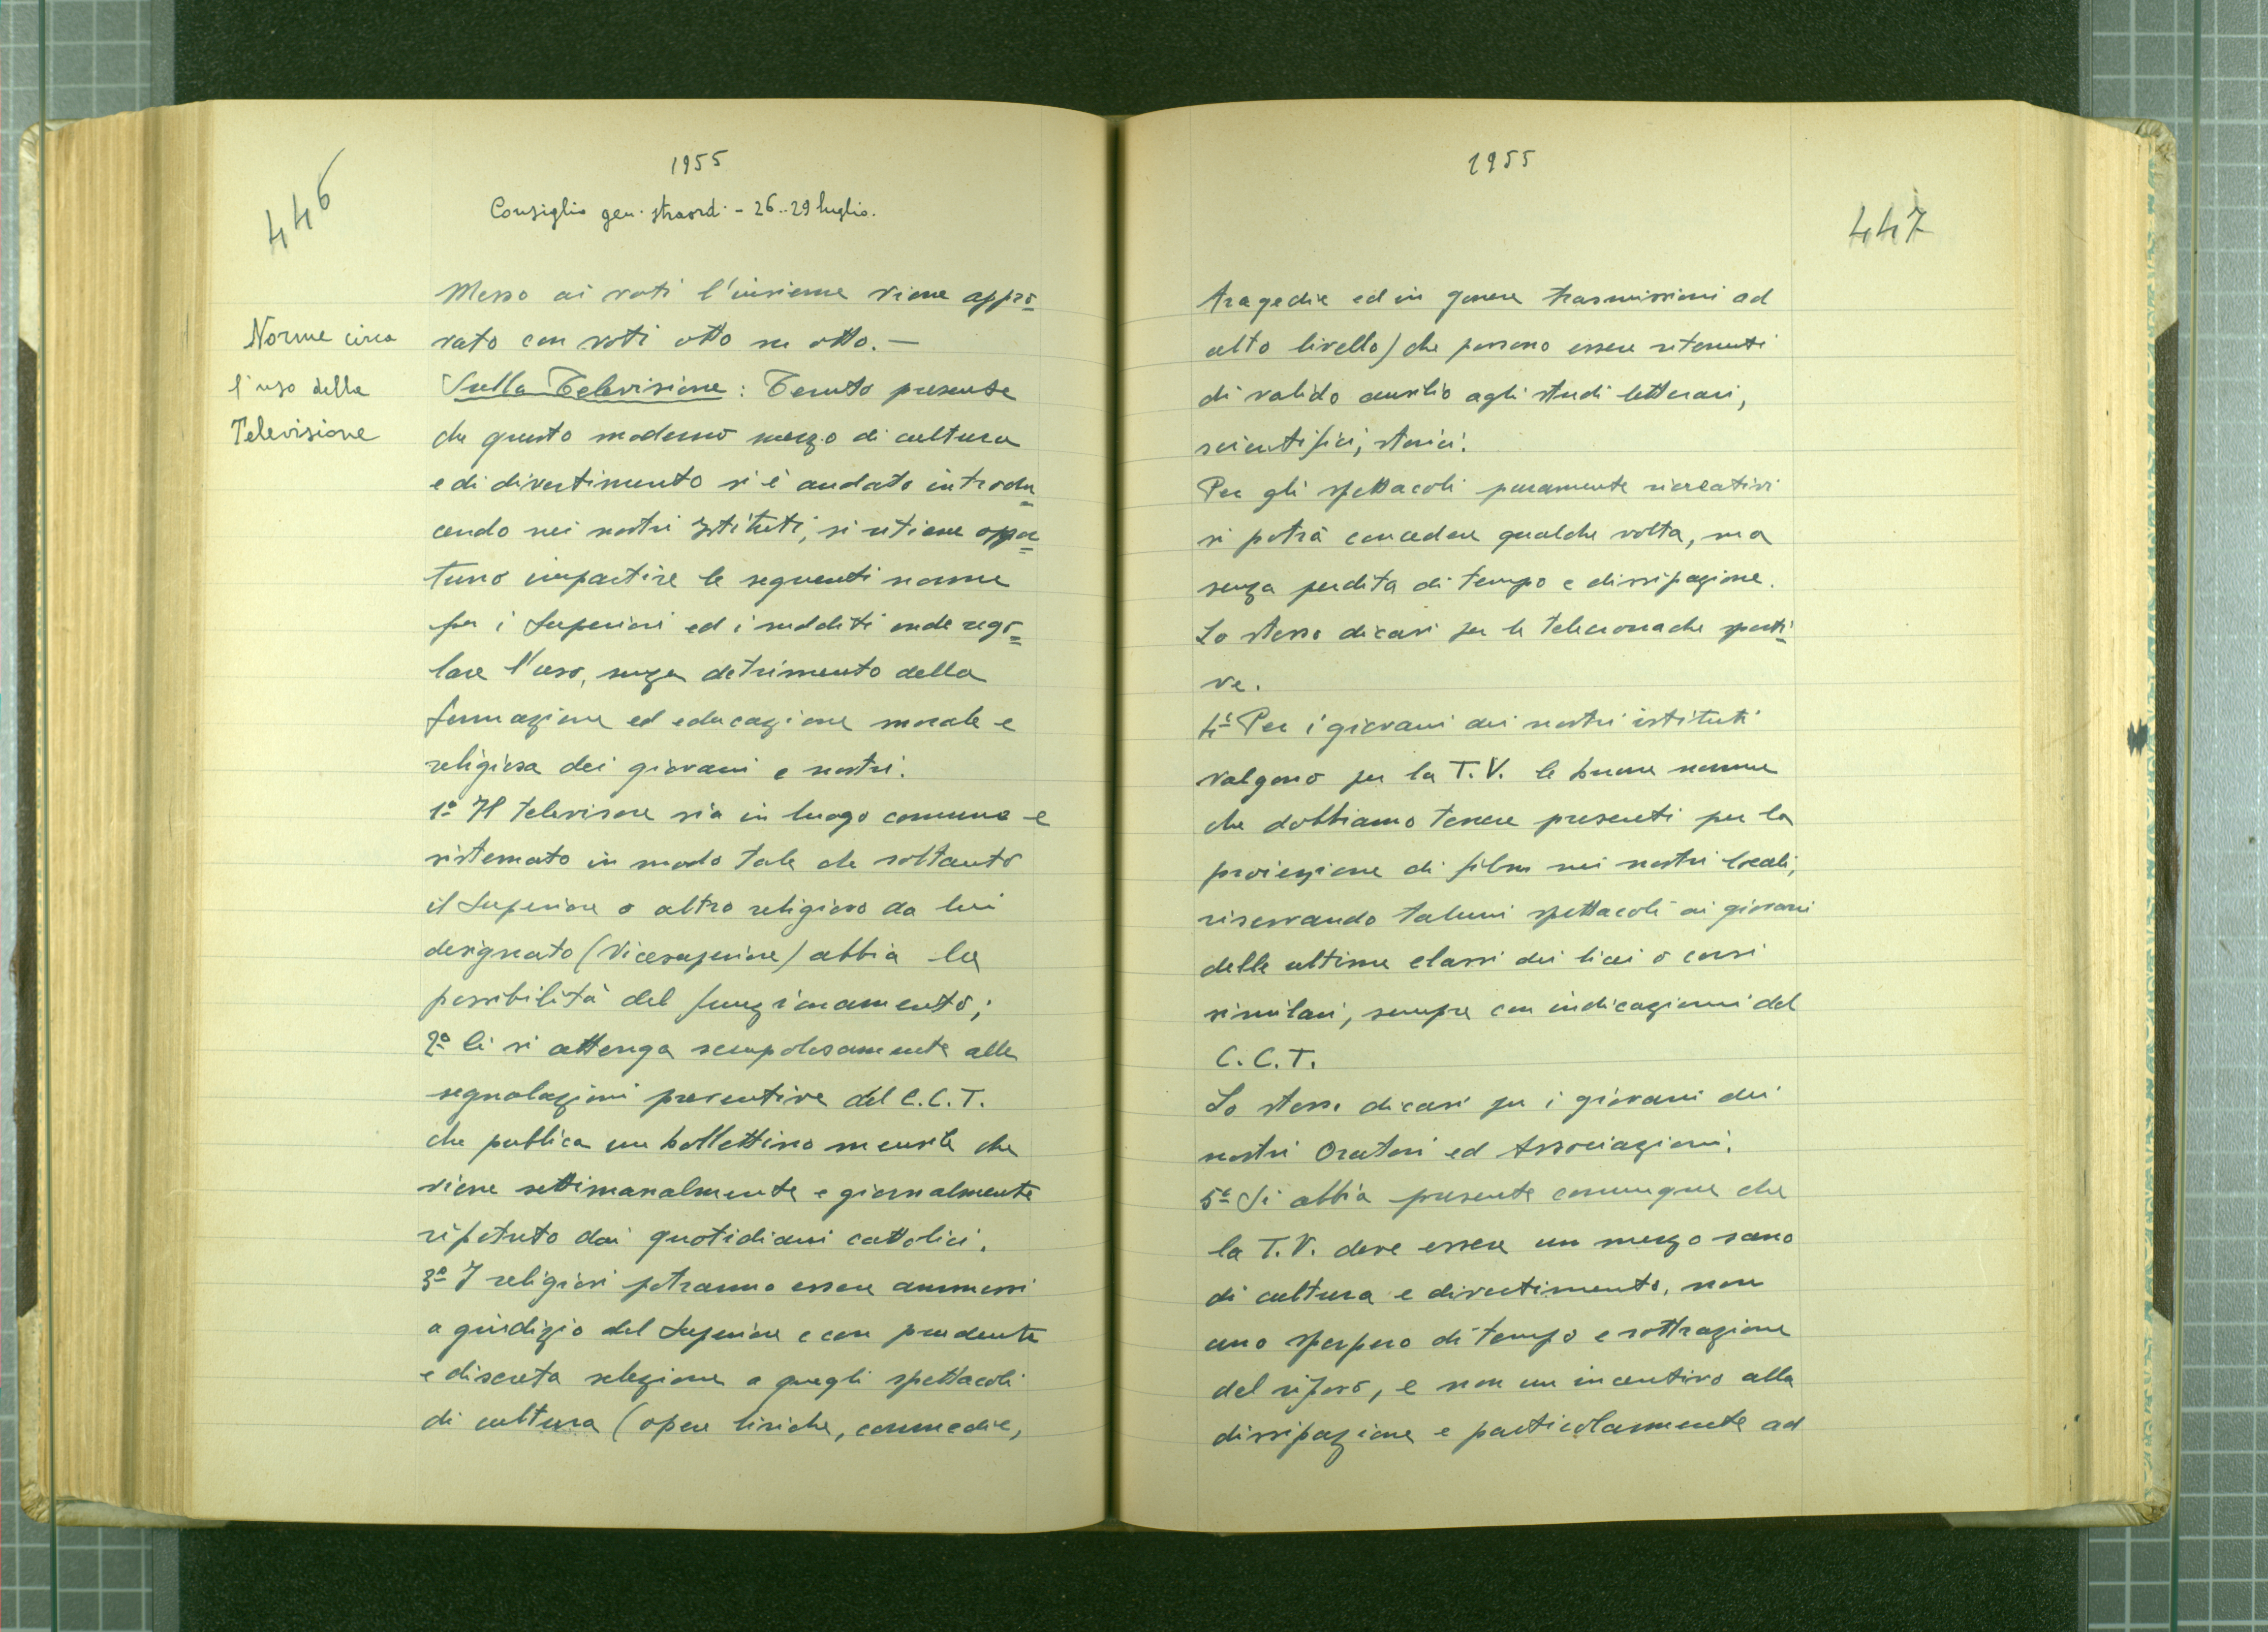 446
1955
Consiglio gen. straord. - 26..29 luglio.
Norme circa
l'uso della
Televisione
Messo ai voti l'insieme viene appro=
vato con voti otto su otto. —
Sulla Televisione: Tenuto presente
che questo moderno mezzo di cultura
e di divertimento si è andato introdu=
cendo nei nostri Istituti, si ritiene oppor=
tuno impartire le seguenti norme
per i Superiori ed i sudditi onde rego=
lare l'uso, senza detrimento della
formazione ed educazione morale e
religiosa dei giovani e nostri.
1º Il televisore sia in luogo comune e
sistemato in modo tale che soltanto
il Superiore o altro religioso da lui
designato (Vicesuperiore) abbia la
possibilità del funzionamento;
2º Ci si attenga scrupolosamente alle
segnalazioni preventive del C.C.T.
che pubblica un bollettino mensile che
viene settimanalmente e giornalmente
ripetuto dai quotidiani cattolici.
3º I religiosi potranno essere ammessi
a giudizio del Superiore e con prudente
e discreta selezione a quegli spettacoli
di cultura (opere liriche, commedie,
1955
447
tragedie ed in genere trasmissioni ad
alto livello) che possono essere ritenuti
di valido ausilio agli studi letterari,
scientifici, storici.
Per gli spettacoli puramente ricreativi
si potrà concedere qualche volta, ma
senza perdita di tempo e dissipazione.
Lo stesso dicasi per le telecronache sporti=
ve.
4º Per i giovani dei nostri istituti
valgono per la T.V. le buone norme
che dobbiamo tenere presenti per la
proiezione di films nei nostri locali,
riservando taluni spettacoli ai giovani
delle ultime classi dei licei o corsi
similari, sempre con indicazioni del
C.C.T.
Lo stesso dicasi per i giovani dei
nostri Oratori ed Associazioni.
5º Si abbia presente comunque che
la T.V. deve essere un mezzo sano
di cultura e divertimento, non
uno sperpero di tempo e sottrazione
del riposo, e non un incentivo alla
dissipazione e particolarmente ad